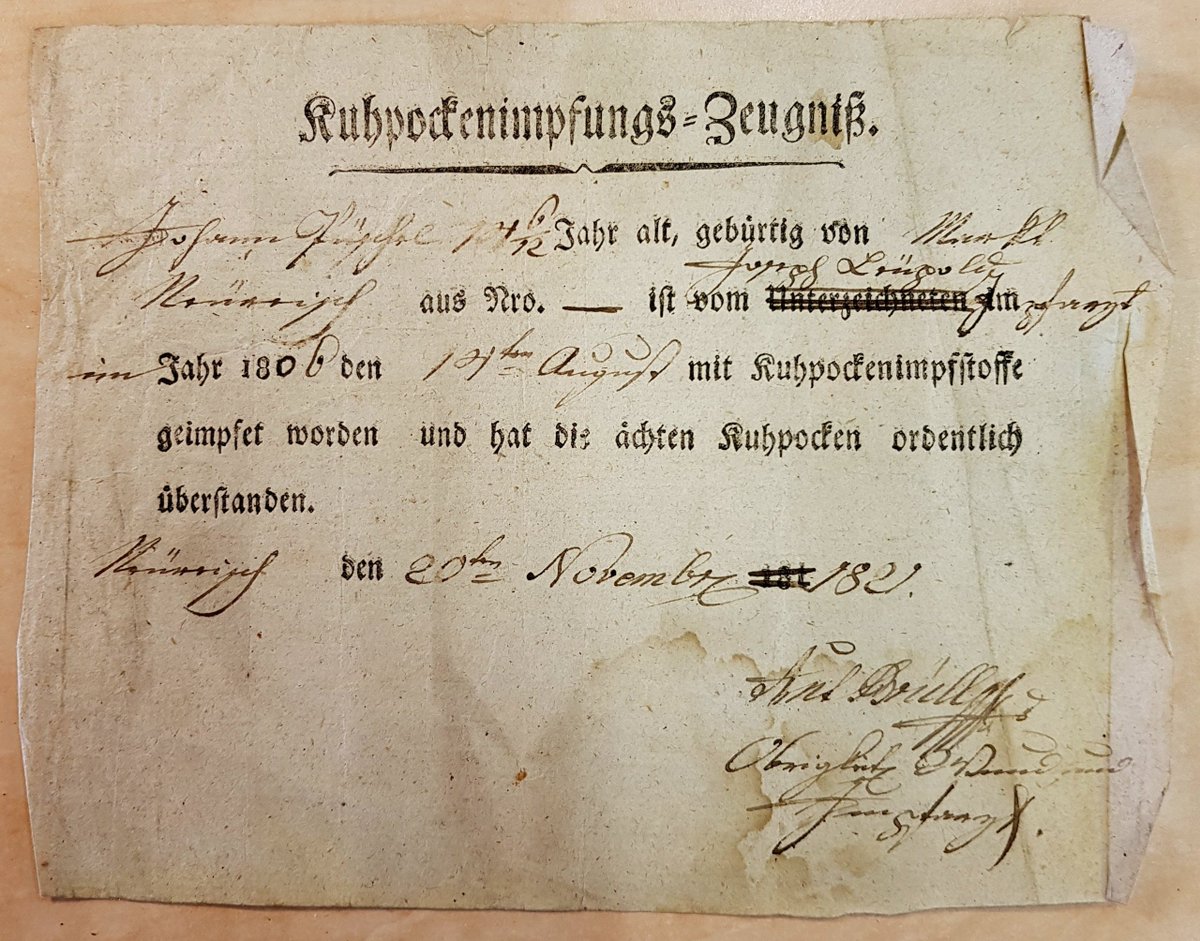 Kuhpockenimpfungs-Zeugniß.
Johann Püschel 14 6/12 Jahr alt, gebürtig von Markt
Joseph Leüpold
Neürrisch aus Nro. — ist vom Unterzeichneten Impfarzt
im Jahr 1806 den 14ten August mit Kuhpockenimpfstoffe
geimpfet worden und hat die ächten Kuhpocken ordentlich
überstanden.
Neürrisch den 20ten November 181 1821.
Ant Brüll
Wund und
Impfarzt.